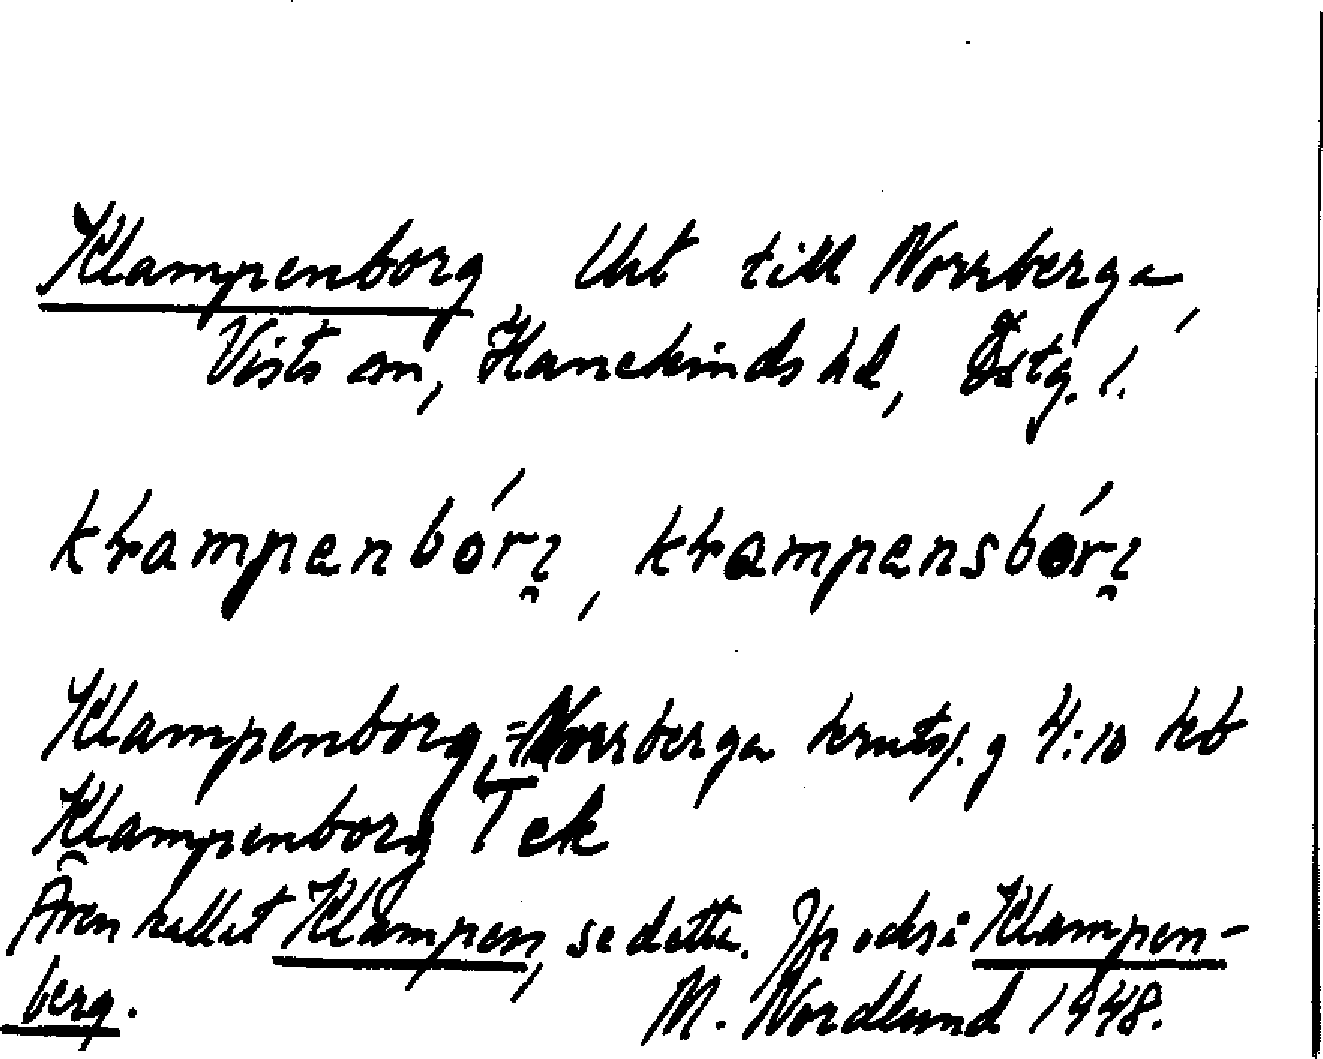 Klampenborg Uht till Norrberga,
Vists sn, Hanekinds hd, Östg. l.
klampenbórj, klampensbórj
Klampenborg, = Norrberga krutsj. g 4:10 kb
Klampenborg T ek
Även kallat Klampen, se detta. Jfr också Klampen-
berg. M. Nordlund 1948.